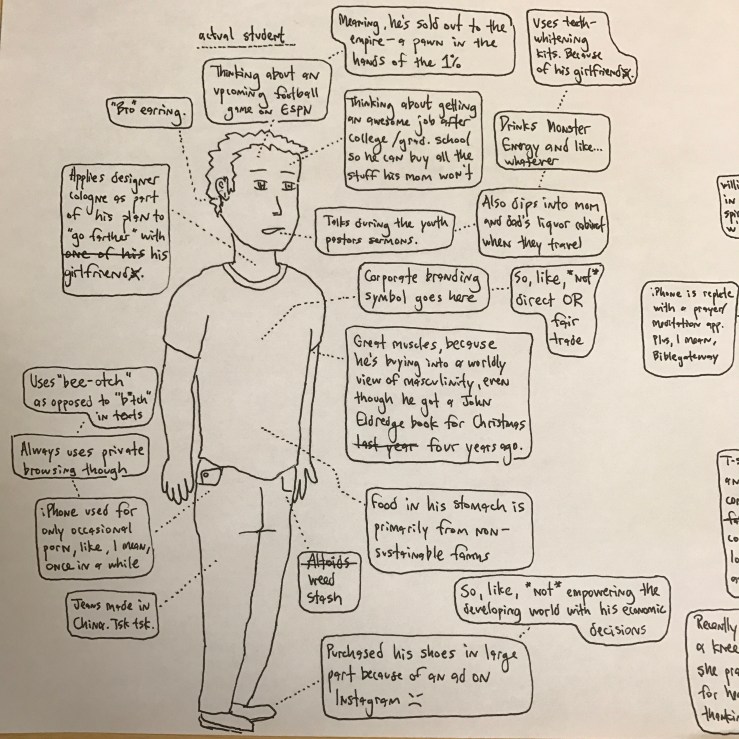 actual student
Meaning, he's sold out to the
empire - a pawn in the
hands of the 1%
Uses teeth-
whitening
kits. Because
of his girlfriends.
Thinking about an
upcoming football
game on ESPN
"Bro" earring.
Thinking about getting
an awesome job after
college/grad. school
so he can buy all the
stuff his mom won't
Drinks Monster
Energy and like...
whatever
Applies designer
cologne as part
of his plan to
"go farther" with
one of his his
girlfriends.
Talks during the youth
pastors sermons.
Also dips into mom
and dad's liquor cabinet
when they travel
Corporate branding
symbol goes here
So, like, *not*
direct OR
fair
trade
iPhone is replete
with a prayer/
meditation app.
Plus, I mean,
Biblegateway
Great muscles, because
he's buying into a worldly
view of masculinity, even
though he got a John
Eldredge book for Christmas
last year four years ago.
Uses "bee-otch"
as opposed to "b*tch"
in texts
Always uses private
browsing though
iPhone used for
only occasional
porn, like, I mean,
once in a while
Food in his stomach is
primarily from non-
sustainable farms
Altoids
weed
stash
Jeans made in
China. Tsk tsk.
So, like, *not* empowering the
developing world with his economic
decisions
Purchased his shoes in large
part because of an ad on
Instagram
in
T-s
Recently
a knee
she pra
for he
thankin